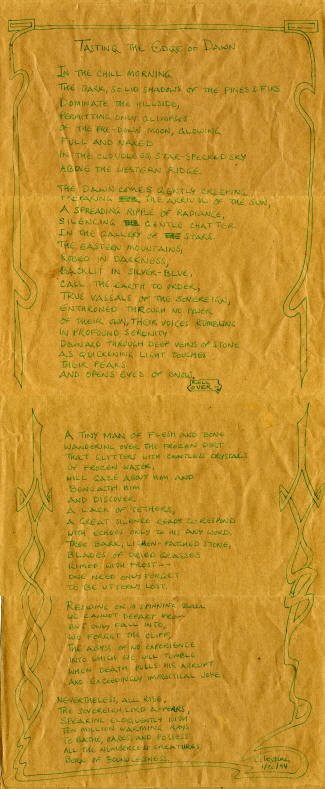 TASTING THE EDGE OF DAWN
IN THE CHILL MORNING
THE DARK, SOLID SHADOWS OF THE PINES & FIRS
DOMINATE THE HILLSIDE,
PERMITTING ONLY GLIMPSES
OF THE PRE-DAWN MOON, GLOWING
FULL AND NAKED
IN THE CLOUDLESS, STAR-SPECKED SKY
ABOVE THE WESTERN RIDGE.
THE DAWN COMES GENTLY CREEPING
PREPARING THE ARRIVAL OF THE SUN,
A SPREADING RIPPLE OF RADIANCE,
SILENCING THE GENTLE CHATTER
IN THE GALLERY OF THE STARS.
THE EASTERN MOUNTAINS,
ROBED IN DARKNESS,
BACKLIT IN SILVER-BLUE,
CALL THE EARTH TO ORDER,
TRUE VASSALS OF THE SOVEREIGN,
ENTHRONED THROUGH NO POWER
OF THEIR OWN, THEIR VOICES RUMBLING
IN PROFOUND SERENITY
DOWNWARD THROUGH DEEP VEINS OF STONE
AS QUICKENING LIGHT TOUCHES
THEIR PEAKS
AND OPENS EYES OF SNOW.
ROLL
OVER
A TINY MAN OF FLESH AND BONE
WANDERING OVER THE FROZEN DIRT
THAT GLITTERS WITH COUNTLESS CRYSTALS
OF FROZEN WATER,
WILL GAZE ABOUT HIM AND
BENEATH HIM
AND DISCOVER
A LACK OF TETHERS,
A GREAT SILENCE READY TO RESPOND
WITH ECHOES ONLY TO HIS ANY WORD,
TREE BARK, LICHEN-PATCHED STONE,
BLADES OF DRIED GRASSES
RIMED WITH FROST--
ONE NEED ONLY FORGET
TO BE UTTERLY LOST.
RESIDING ON A SPINNING BALL
WE CANNOT DEPART FROM
BUT ONLY FALL INTO,
WE FORGET THE CLIFF,
THE ABYSS OF NO EXPERIENCE
INTO WHICH WE WILL TUMBLE
WHEN DEATH PULLS HIS ABRUPT
AND EXCEEDINGLY IMPRACTICAL JOKE.
NEVERTHELESS, ALL RISE,
THE SOVEREIGN LORD APPEARS,
SPEAKING ELOQUENTLY WITH
TEN MILLION WARMING RAYS
TO BATHE, CARESS AND POSSESS
ALL THE NUMBERLESS CREATURES
BORN OF BOUNDLESSNESS.